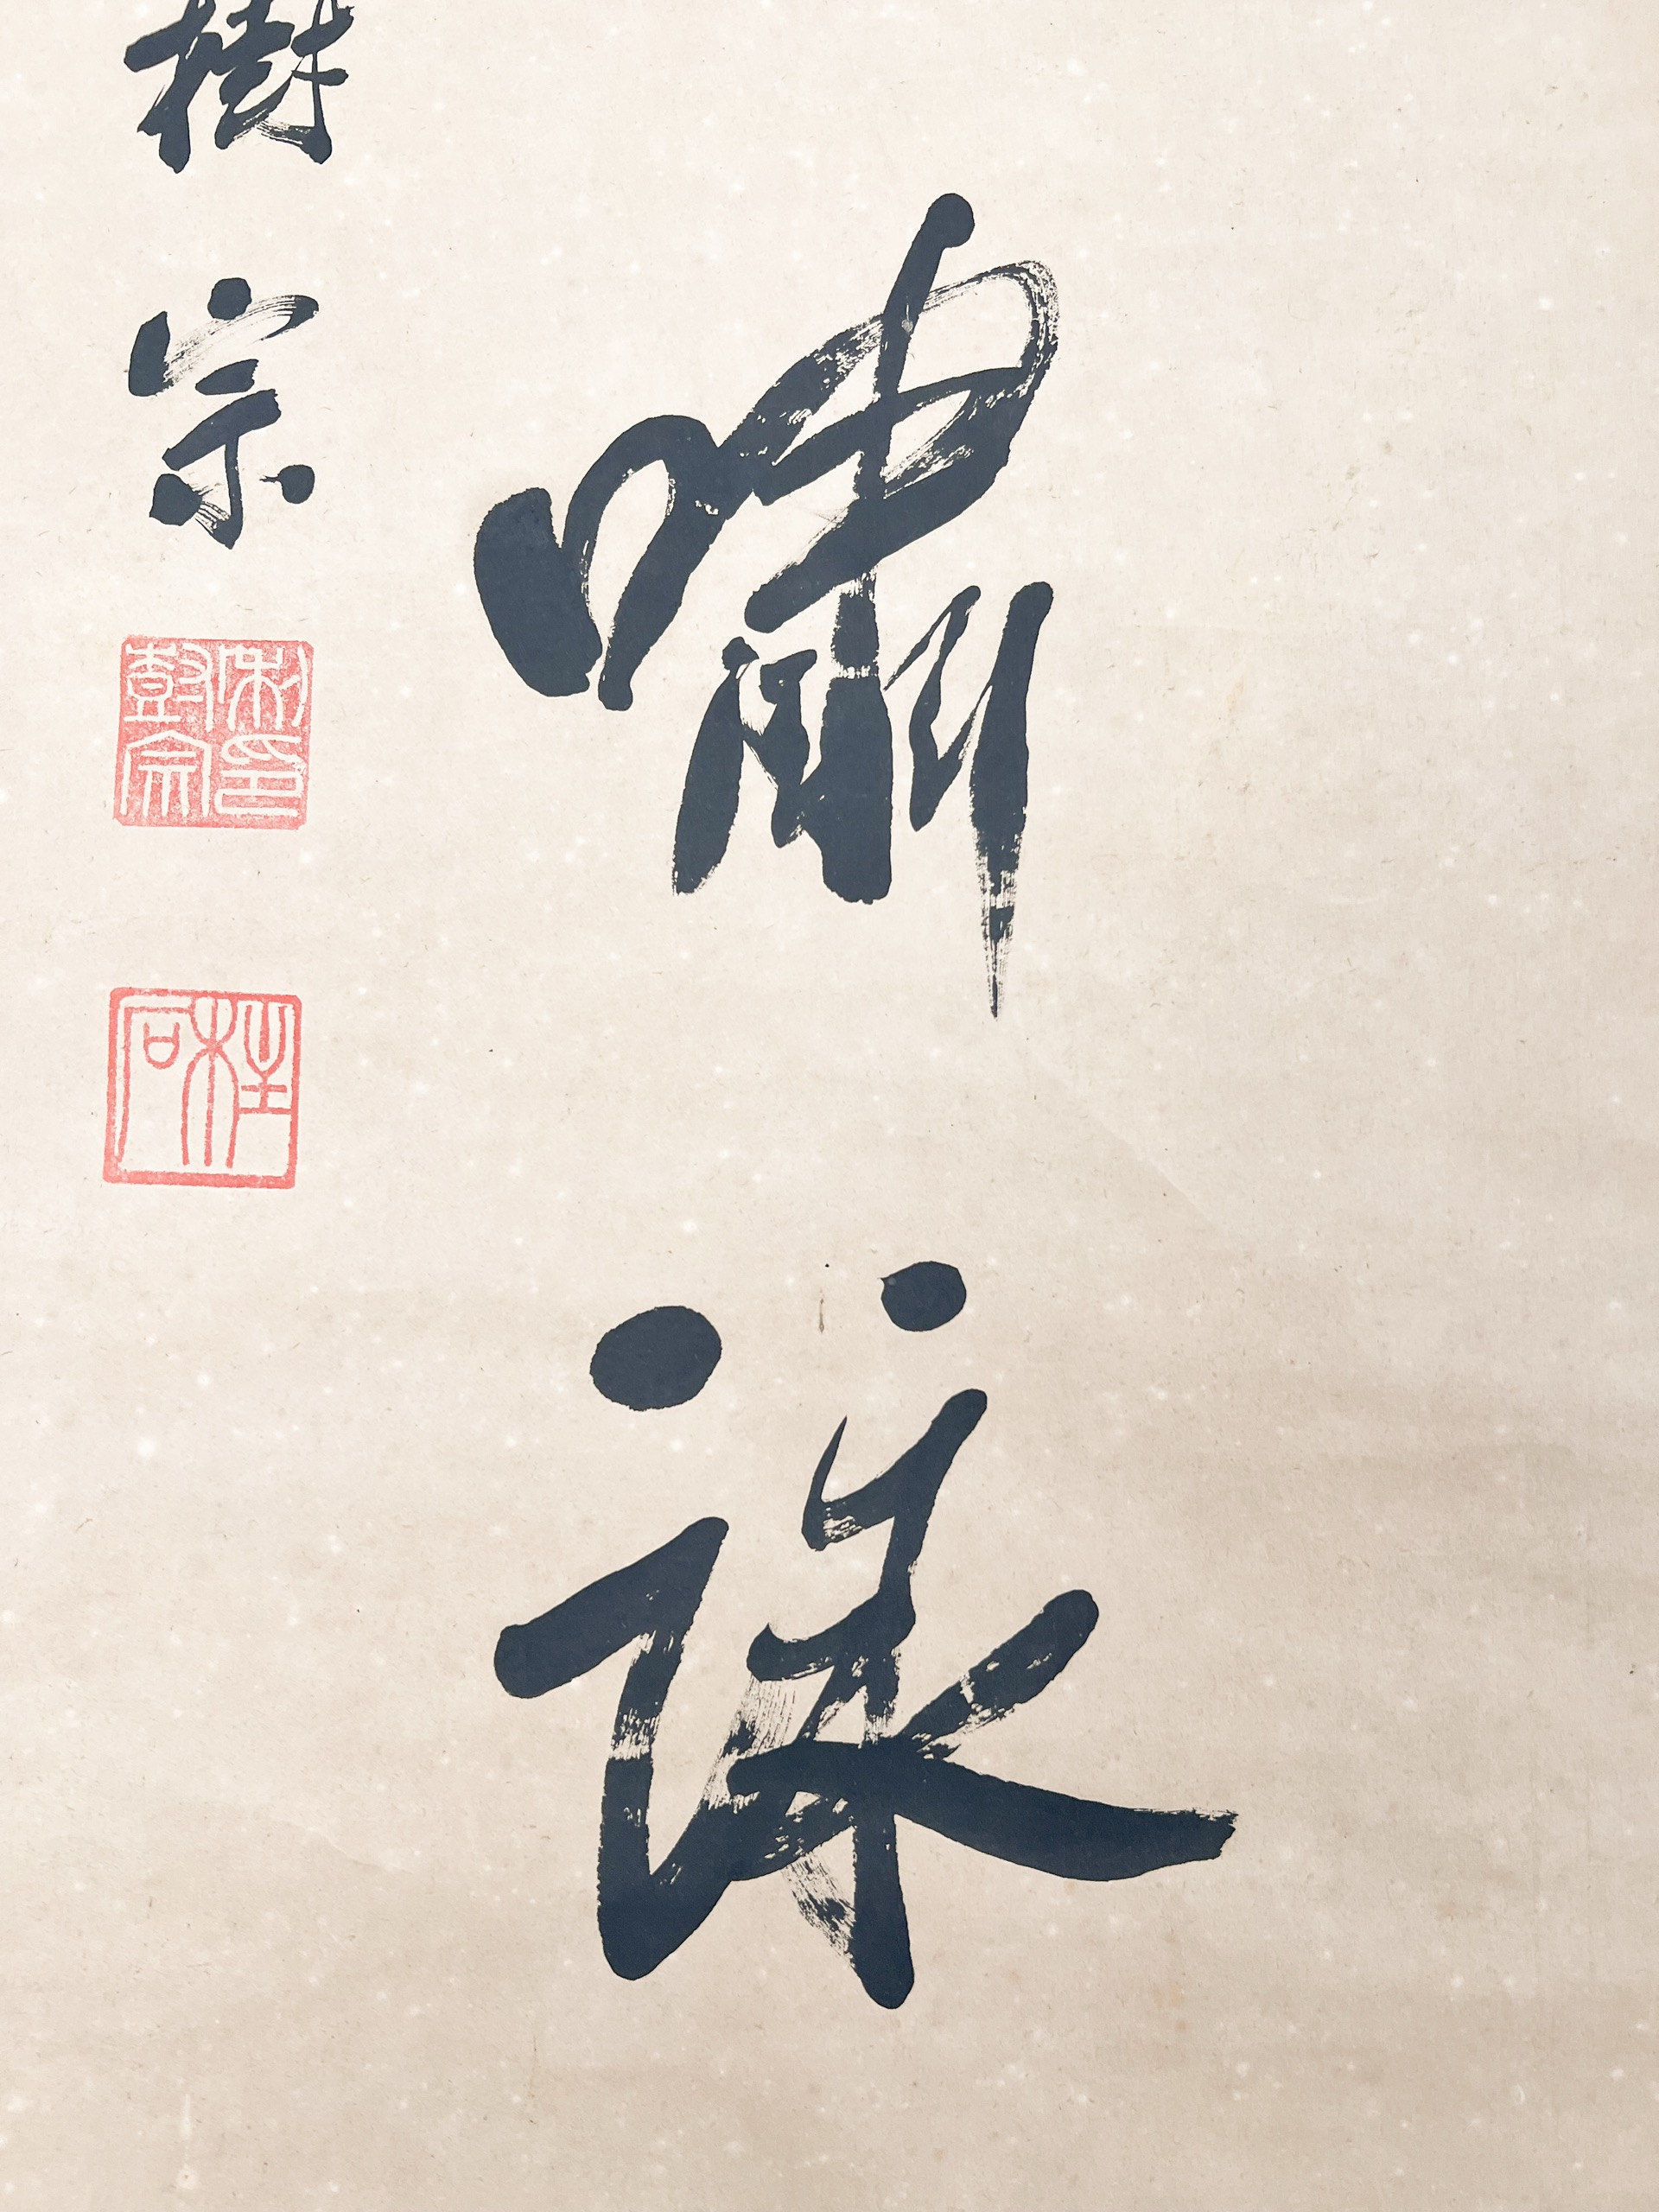 嘯詠
樹宗